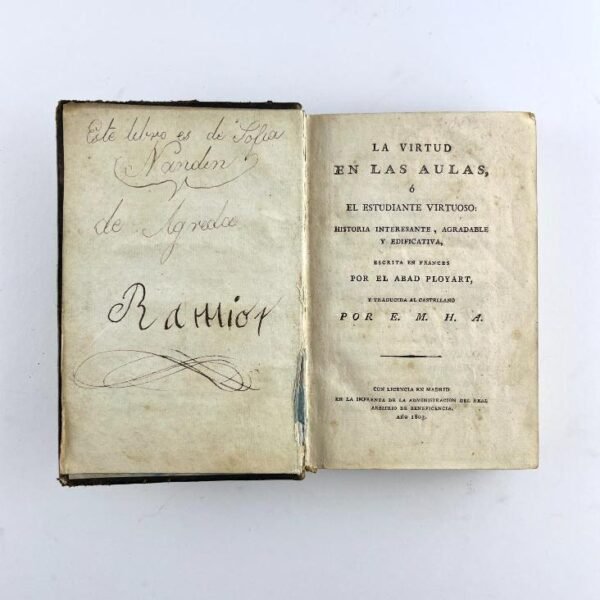 Este libro es de Sofia
Nandin
de Agreda
Ramior
LA VIRTUD
EN LAS AULAS,
ó
EL ESTUDIANTE VIRTUOSO:
HISTORIA INTERESANTE, AGRADABLE
Y EDIFICATIVA,
ESCRITA EN FRANCES
POR EL ABAD PLOYART,
Y TRADUCIDA AL CASTELLANO
POR E. M. H. A.
CON LICENCIA EN MADRID
EN LA IMPRENTA DE LA ADMINISTRACION DEL REAL
ARBITRIO DE BENEFICENCIA.
AÑO 1803.